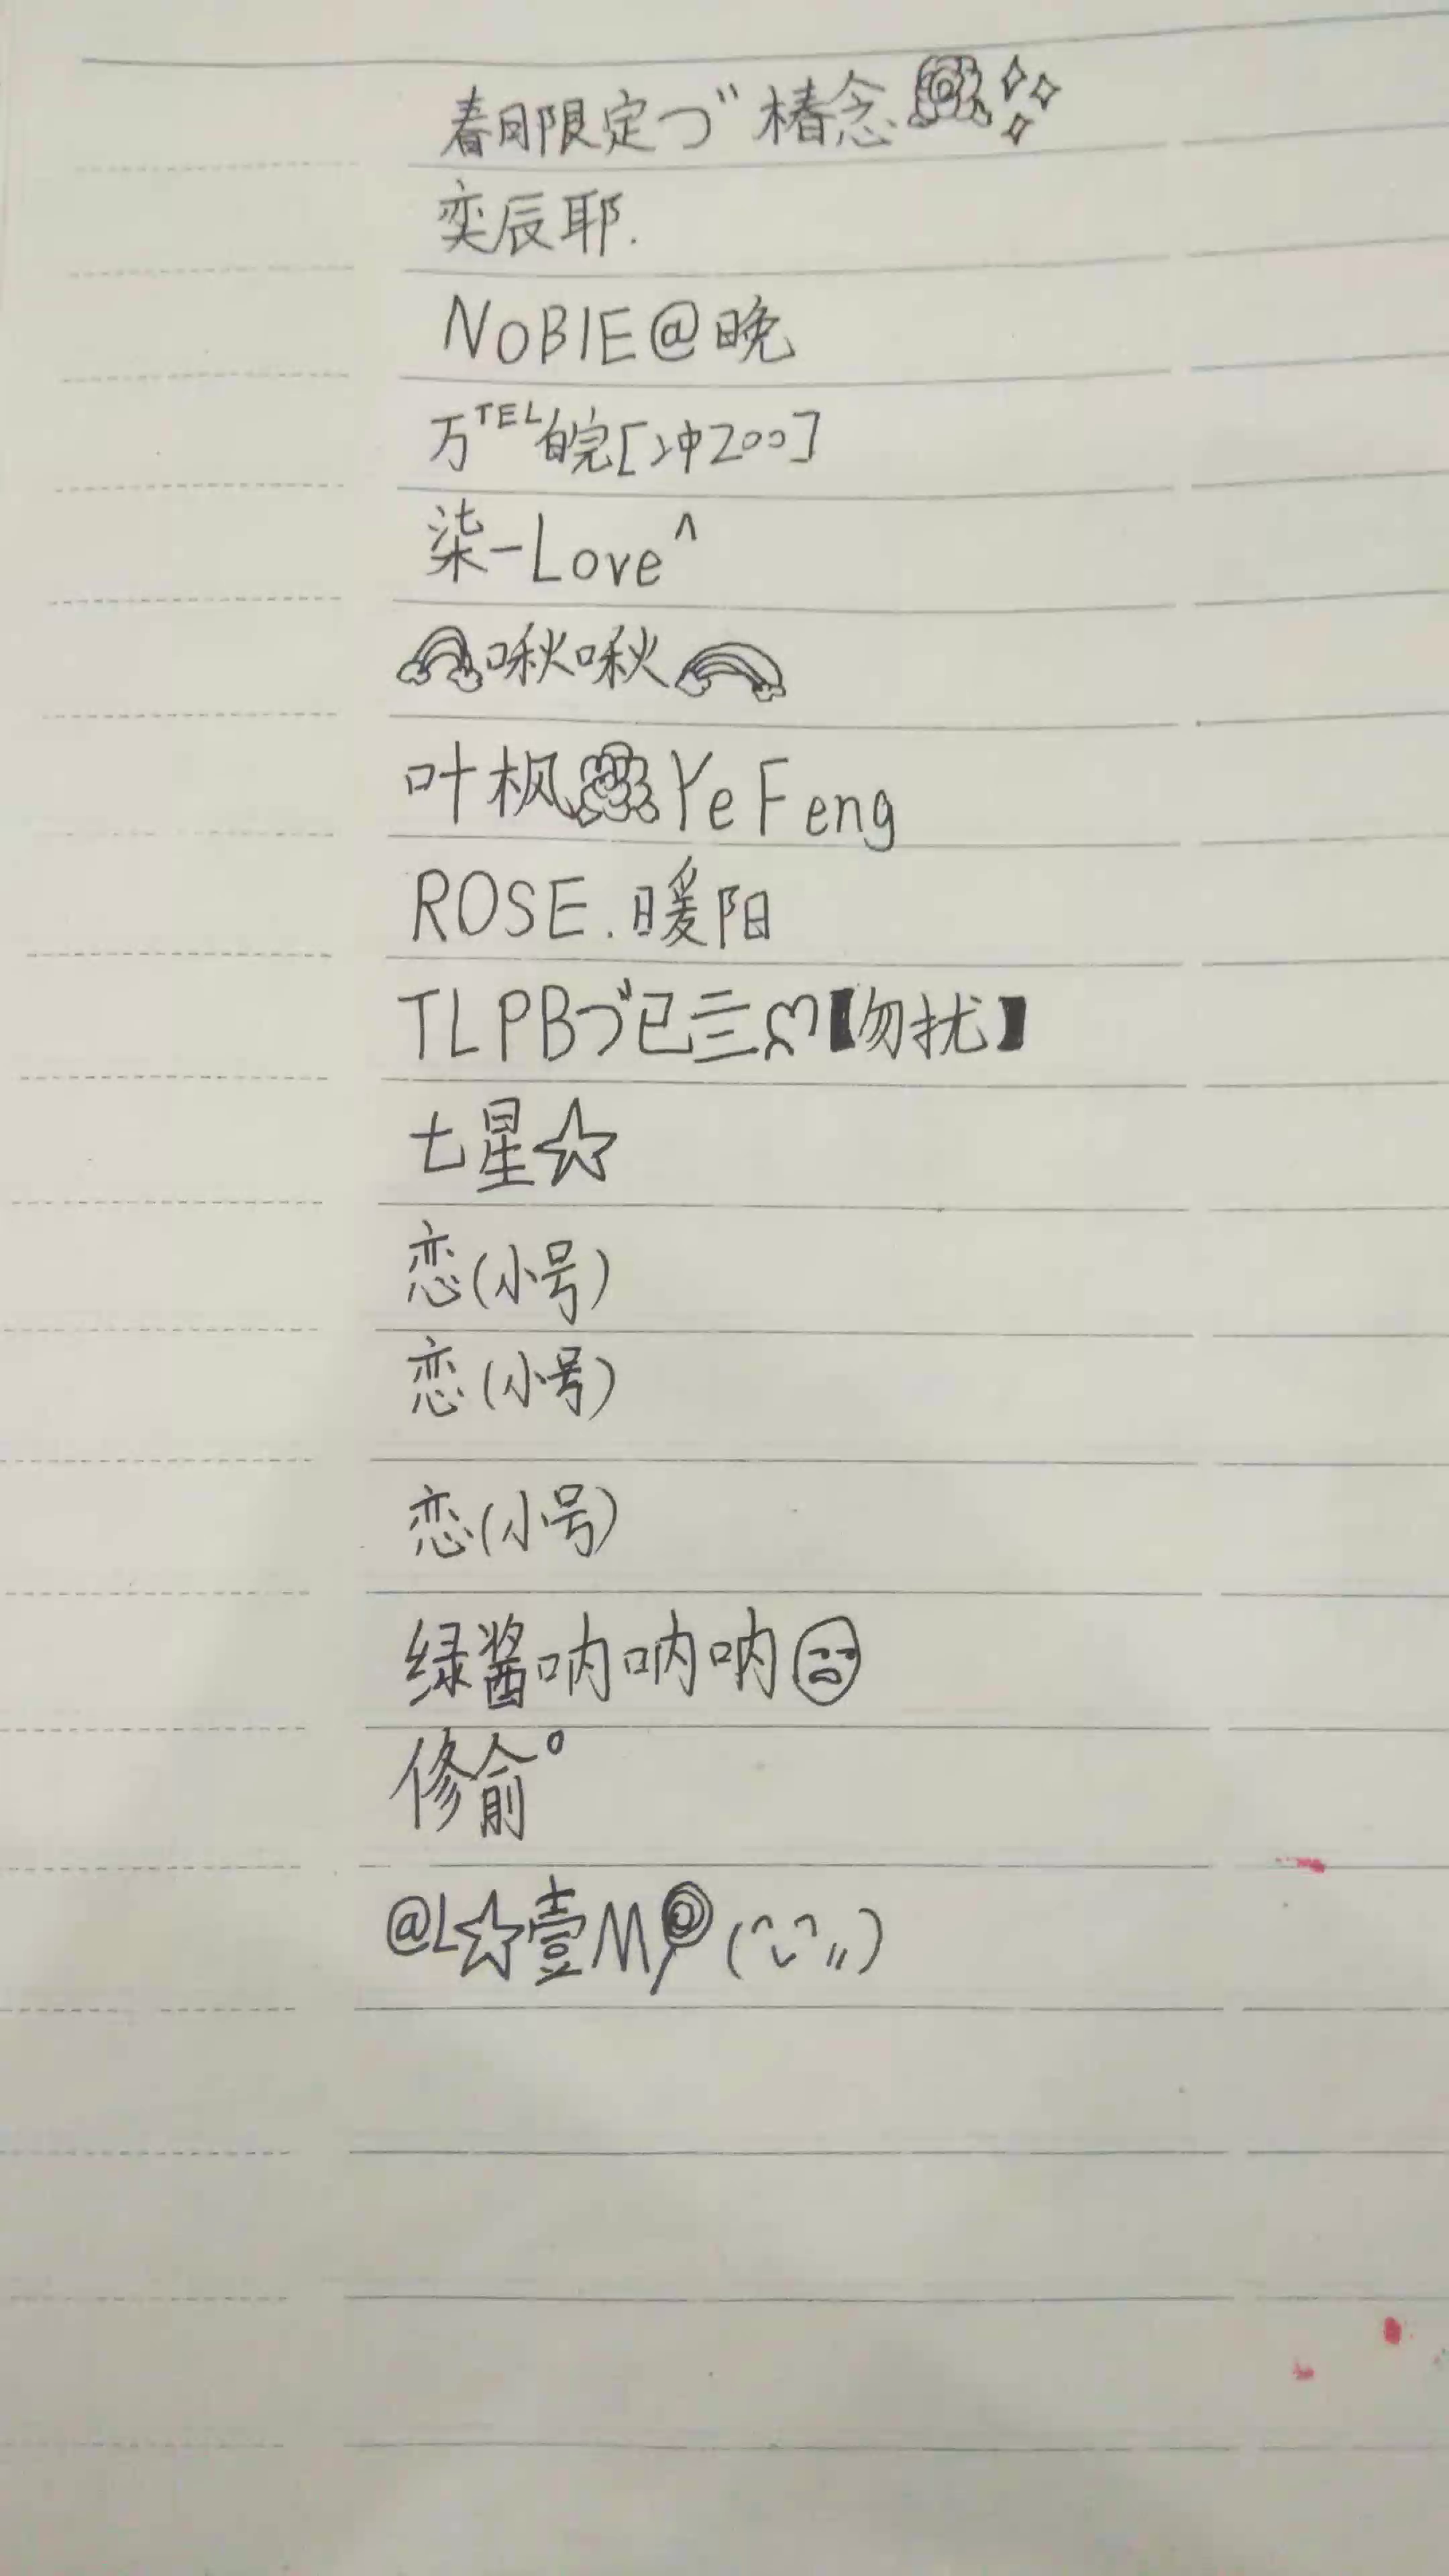 春日限定づ椿念
奕辰耶.
NOBIE@晚
万TEL皖[冲200]
柒-Love^
啾啾
叶枫YeFeng
ROSE.暖阳
TLPBづ已亖ლ【勿扰】
七星☆
恋(小号)
恋(小号)
恋(小号)
绿酱呐呐呐
修俞°
@L☆壹M